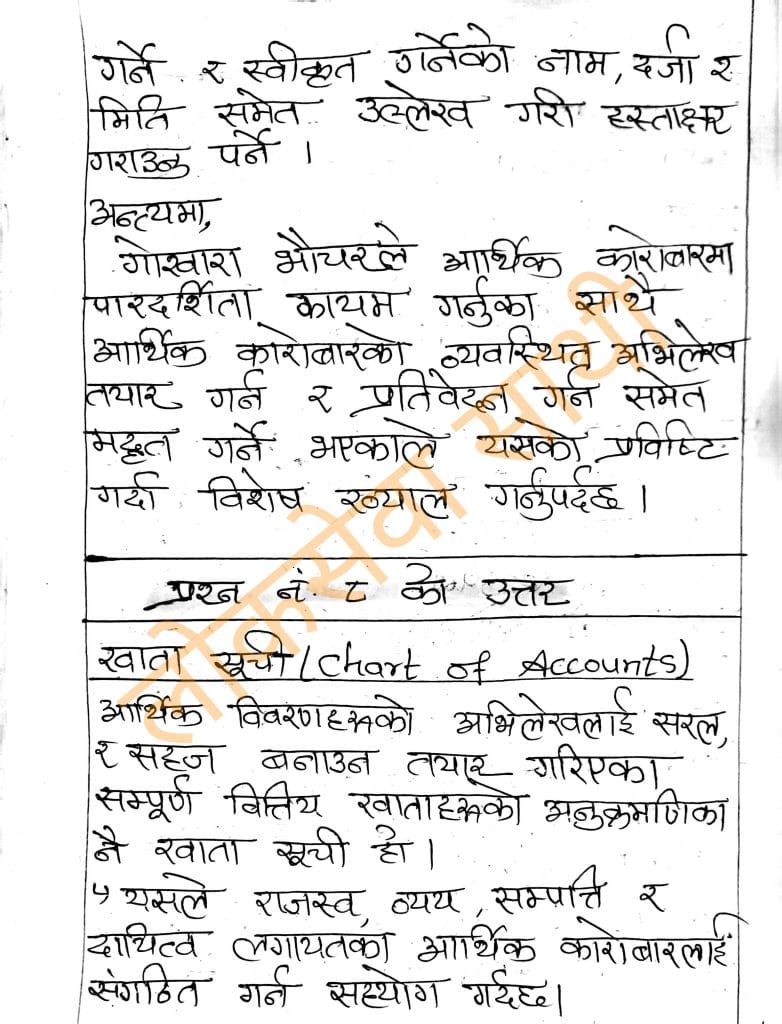 गर्ने र स्वीकृत गर्नेको नाम, दर्जा र
मिति समेत उल्लेख गरी हस्ताक्षर
गराउनु पर्ने ।
अन्त्यमा,
गोश्वारा भौचरले आर्थिक कारोबारमा
पारदर्शिता कायम गर्नुका साथै
आर्थिक कारोबारको व्यवस्थित अभिलेख
तयार गर्न र प्रतिवेदन गर्न समेत
मद्दत गर्ने भएकाले यसको प्रविष्टि
गर्दा विशेष ख्याल गर्नुपर्दछ ।
प्रश्न नं. ८ को उत्तर
खाता सूची (Chart of Accounts)
आर्थिक विवरणहरूको अभिलेखलाई सरल,
र सहज बनाउन तयार गरिएका
सम्पूर्ण वित्तिय खाताहरूको अनुक्रमणिका
नै खाता सूची हो ।
↳ यसले राजस्व, व्यय, सम्पत्ति र
दायित्व लगायतका आर्थिक कारोबारलाई
संगठित गर्न सहयोग गर्दछ।
लोकसेवा साथी